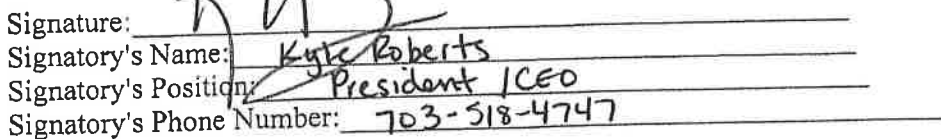 Signature:
Signatory's Name: Kyle Roberts
Signatory's Position: President / CEO
Signatory's Phone Number: 703-518-4747